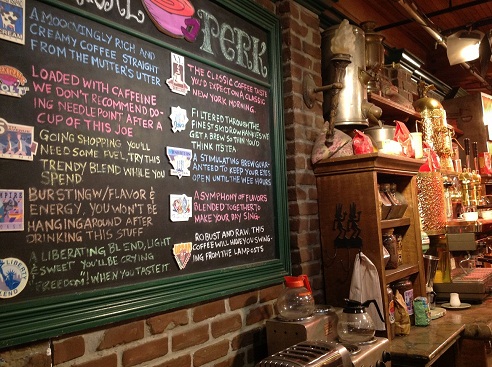 PERK
A MOO-VINGLY RICH AND
CREAMY COFFEE STRAIGHT
FROM THE MUTTER'S UTTER
LOADED WITH CAFFEINE
WE DON'T RECOMMEND DO-
ING NEEDLEPOINT AFTER A
CUP OF THIS JOE
GOING SHOPPING YOU'LL
NEED SOME FUEL, TRY THIS
TRENDY BLEND WHILE YOU
SPEND
BURSTING W/ FLAVOR &
ENERGY. YOU WON'T BE
HANGING AROUND AFTER
DRINKING THIS STUFF
A LIBERATING BLEND, LIGHT
& SWEET YOU'LL BE CRYING
"FREEDOM!" WHEN YOU TASTE IT.
LIBERTY
BLEND
THE CLASSIC COFFEE TASTE
YOU'D EXPECT ON A CLASSIC
NEW YORK MORNING
FILTERED THROUGH THE
FINEST SKI DRAWHANKIES WE
GET A BREW SO THIN YOU'D
THINK ITS TEA
A STIMULATING BREW GUAR-
ANTEED TO KEEP YOUR EYES
OPEN UNTIL THE WEE HOURS
A SYMPHONY OF FLAVORS
BLENDED TOGETHER TO
MAKE YOUR DAY SING
ROBUST AND RAW. THIS
COFFEE WILL HAVE YOU SWING-
ING FROM THE LAMP POSTS